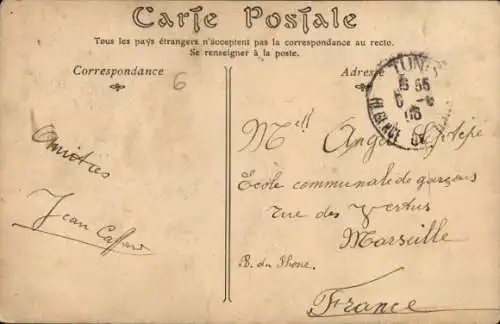 Carte Postale
Tous les pays étrangers n'acceptent pas la correspondance au recto.
Se renseigner à la poste.
Correspondance
6
Adresse
TUNIS
Amitiés
Jean
Mell
École communale de garçons
rue des Vertus
Marseille
B. du Rhone.
France